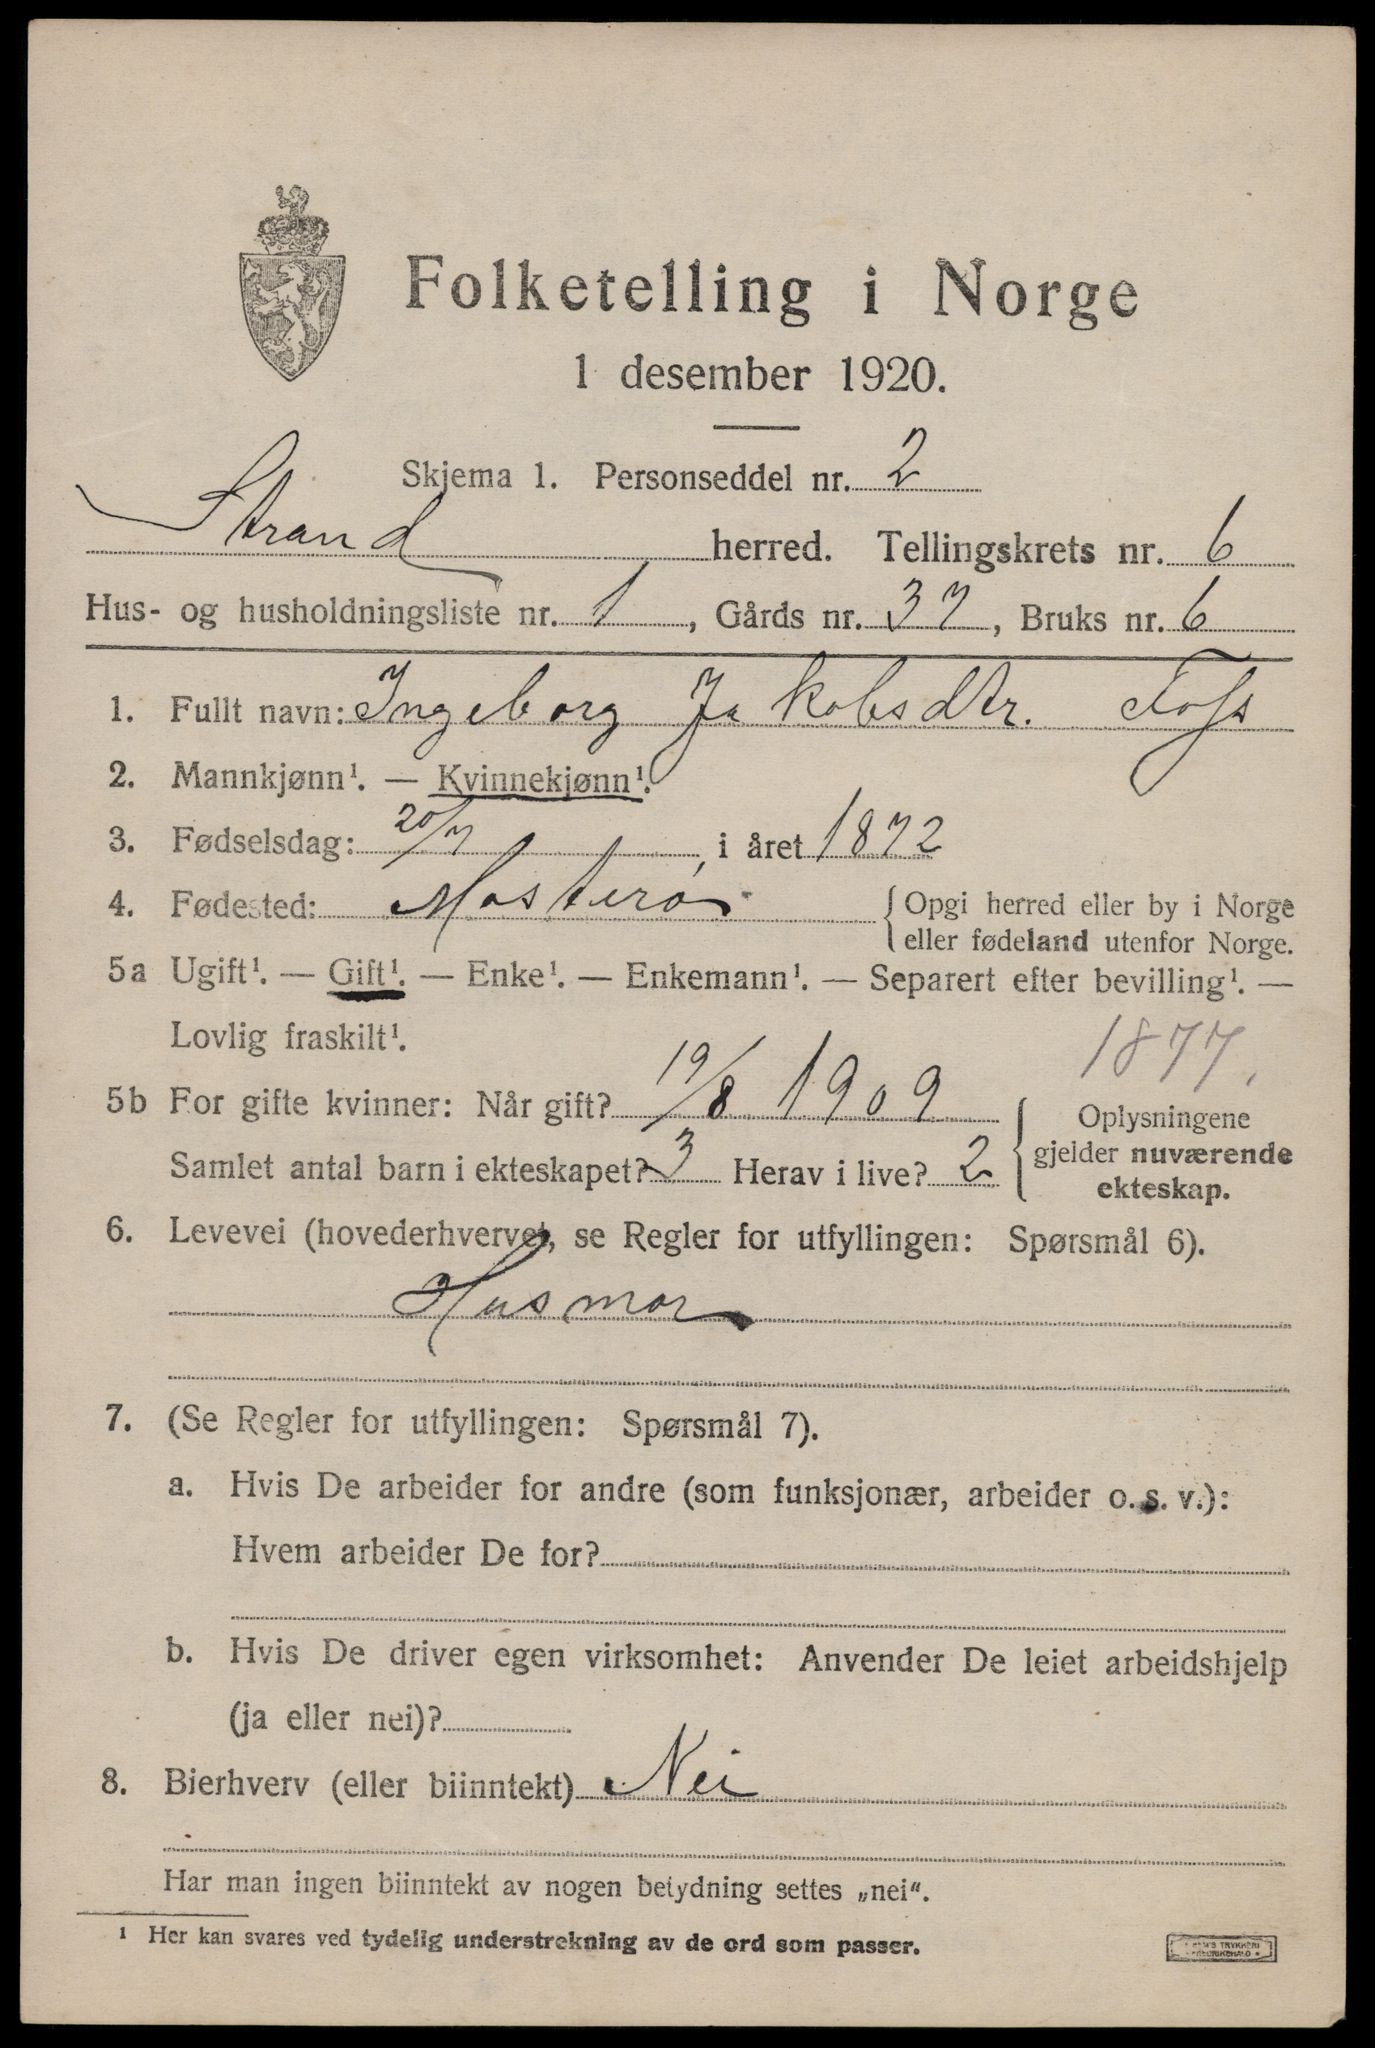 Folketelling i Norge
1 desember 1920.
Skjema 1. Personseddel nr. 2
Strand herred. Tellingskrets nr. 6
Hus- og husholdningsliste nr. 1, Gårds nr. 37, Bruks nr. 6
1. Fullt navn: Ingeborg Jakobsdtr. Foss
2. Mannkjønn¹. — Kvinnekjønn¹.
3. Fødselsdag: 20/7, i året 1872
4. Fødested: Mosterø { Opgi herred eller by i Norge
eller fødeland utenfor Norge.
5a Ugift¹. — Gift¹. — Enke¹. — Enkemann¹. — Separert efter bevilling¹. —
Lovlig fraskilt¹.
1877.
5b For gifte kvinner: Når gift? 19/8 1909
Samlet antal barn i ekteskapet? 3 Herav i live? 2
Oplysningene
gjelder nuværende
ekteskap.
6. Levevei (hovederhvervet, se Regler for utfyllingen: Spørsmål 6).
Husmor
7. (Se Regler for utfyllingen: Spørsmål 7).
a. Hvis De arbeider for andre (som funksjonær, arbeider o. s. v.):
Hvem arbeider De for?
b. Hvis De driver egen virksomhet: Anvender De leiet arbeidshjelp
(ja eller nei)?
8. Bierhverv (eller biinntekt) Nei
Har man ingen biinntekt av nogen betydning settes „nei“.
¹ Her kan svares ved tydelig understrekning av de ord som passer.
TRYKKERI